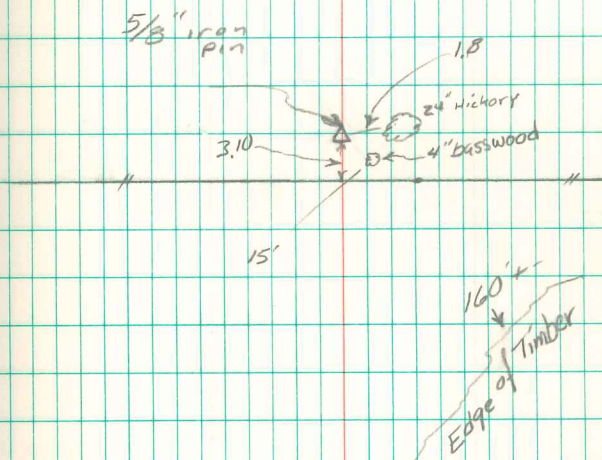 5/8" iron
pin
1.8
24" Hickory
3.10
4" basswood
15'
160' +-
Edge of Timber